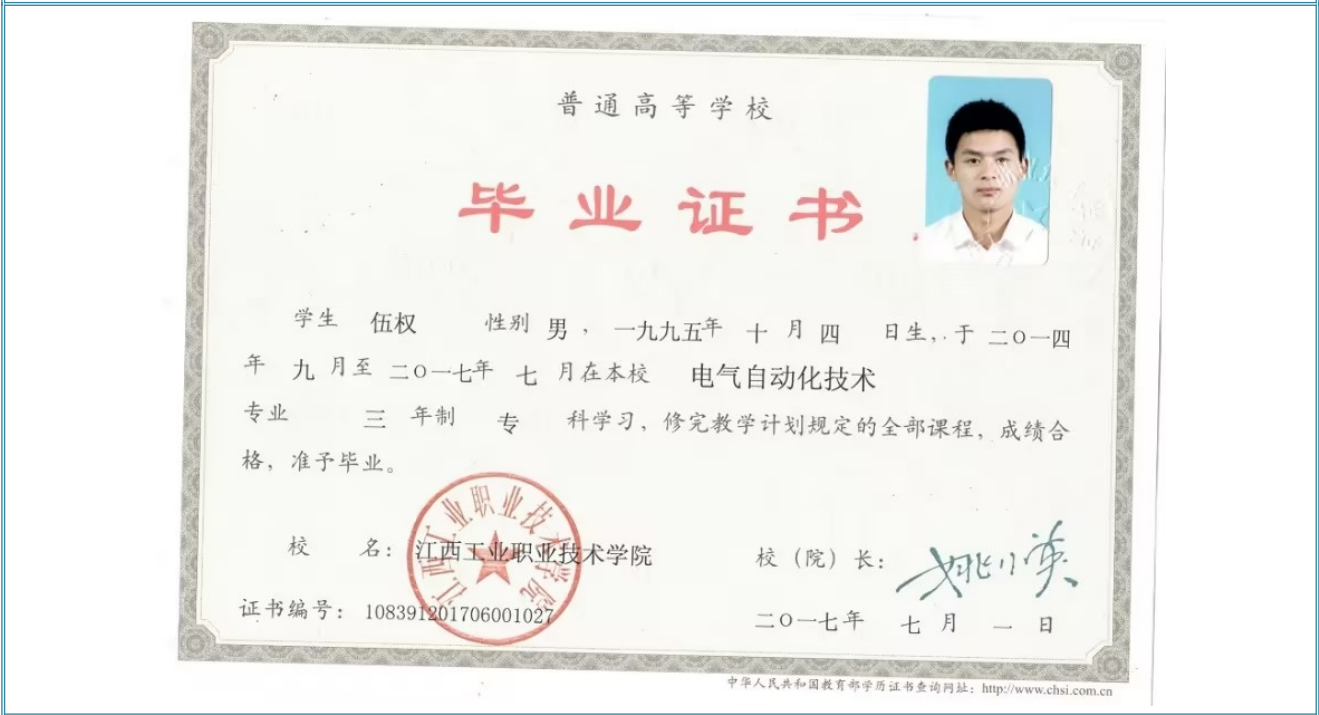 普通高等学校
毕业证书
学生 伍权 性别 男，一九九五年 十 月 四 日生，于 二〇一四
年 九 月至 二〇一七年 七 月在本校 电气自动化技术
专业 三 年制 专 科学习，修完教学计划规定的全部课程，成绩合
格，准予毕业。
江西工业职业技术学院
校 名：江西工业职业技术学院
校（院）长：姚小英
证书编号：108391201706001027
二〇一七年 七 月 一 日
中华人民共和国教育部学历证书查询网址：http://www.chsi.com.cn